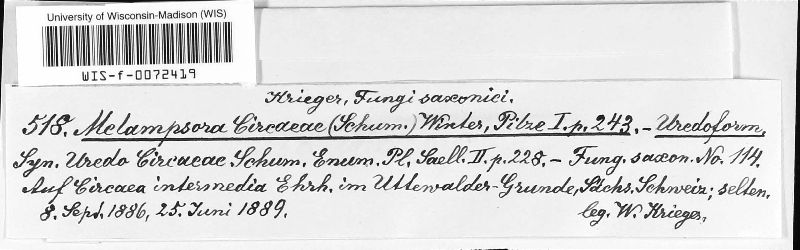 University of Wisconsin-Madison (WIS)
WIS-f-0072419
Krieger, Fungi saxonici.
518. Melampsora Circaeae (Schum.) Winter, Pilze I. p. 243. – Uredoform,
Syn. Uredo Circaeae Schum. Enum. Pl. Saell. II. p. 228. – Fung. saxon. No. 114.
Auf Circaea intermedia Ehrh. im Uttewalder-Grunde, Sächs. Schweiz; selten.
8. Sept. 1886, 25. Juni 1889.
leg. W. Krieger.